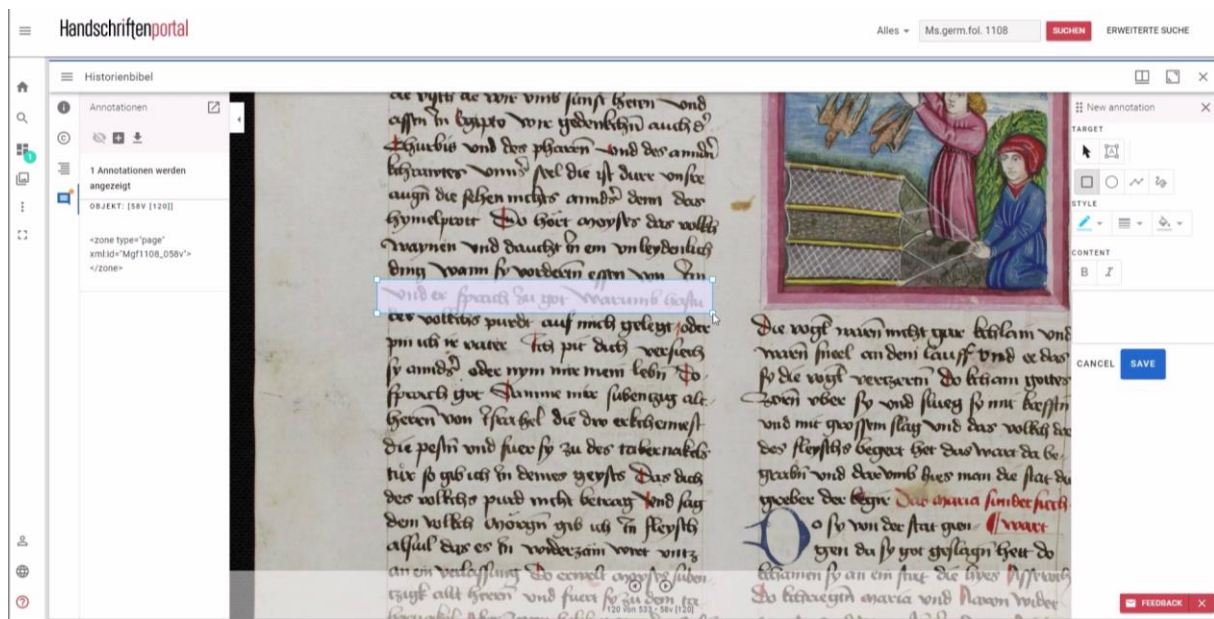 Handschriftenportal
Alles
Ms.germ.fol. 1108
SUCHEN
ERWEITERTE SUCHE
Historienbibel
Annotationen
1 Annotationen werden
angezeigt
OBJEKT: [58V [120]]
<zone type="page"
xml:id="Mgf1108_058v">
</zone>
1
vnd
assen in Egipto wir gedenkchn auch
Churbis vnd des pharen vnd des
sel die ist durr vnser
augn die sehen nichts annders denn das
hymelprott Do hort moyses das volkch
waynen vnd daucht in ein vnleydenlich
ding wann sy vordern essen von im
vnd er sprach zu got Warumb hastu
des volkchs purdt auf mich gelegt oder
pin ich ir vater Ich pit dich
sy annders oder nym mir mein lebn Do
sprach got Samme mir sibenczig alt
herren von Israhel die dw
die pestn vnd fuer sy zu des tabernakels
tür so gib ich in deines geysts Das dich
des volkchs purd nicht betrag Vnd sag
dem volkch morgn gib ich in fleysch
alsuil das es in widerzam wirt vntz
an ein Do erwelt moyses siben
czigk allt herren vnd fuert sy zu dem
Die vogl warn nicht gar kchlain vnd
warn snel an dem lauff Vnd ee das
sy die vogl verczertn Do kcham gottes
zorn vber sy vnd slueg sy mit
vnd mit grossem slag Vnd das volkch das
des fleyschs begert het das wart da be
grabn vnd dar vmb hies man die stat
greber der begir Das maria sunder siech
o sy von der stat gien wart
gen da sy got geslagn hett do
kchamen sy an ein stat die hies
Do kchriegtn maria vnd Aaron wider
120 von 533 - 58v [120]
New annotation
TARGET
STYLE
CONTENT
B
I
CANCEL
SAVE
FEEDBACK